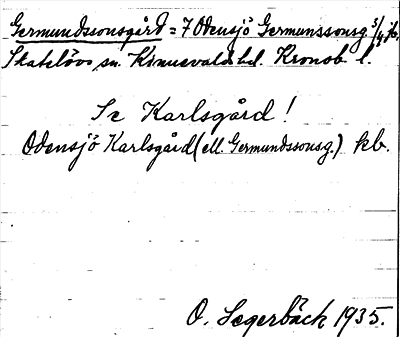 Germundssonsgård = 7 Odensjö Germunssonsg.
Skatelövs sn. Kinnevalds hd. Kronob. l.
Se Karlsgård!
Odensjö Karlsgård (ell. Germundssonsg.) kb.
O. Segerbäck 1935.